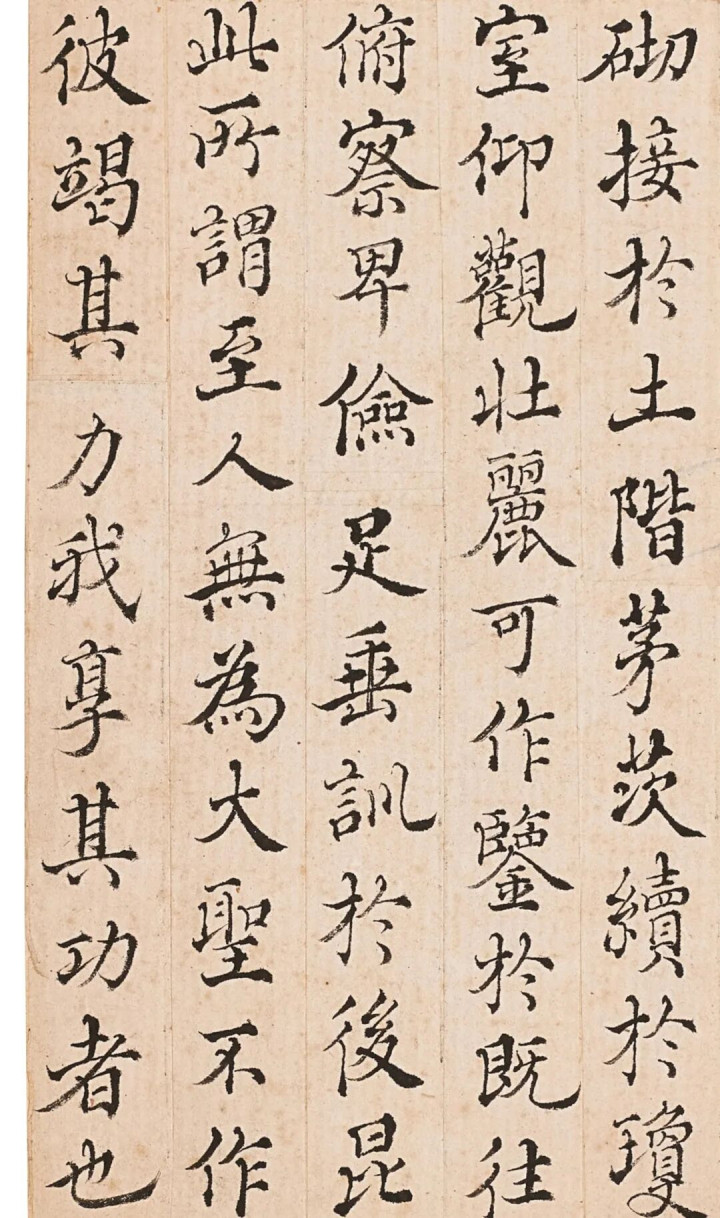 砌接於土階茅茨續於瓊
室仰觀壯麗可作鑒於既往
俯察卑儉足垂訓於後昆
此所謂至人無為大聖不作
彼竭其力我享其功者也